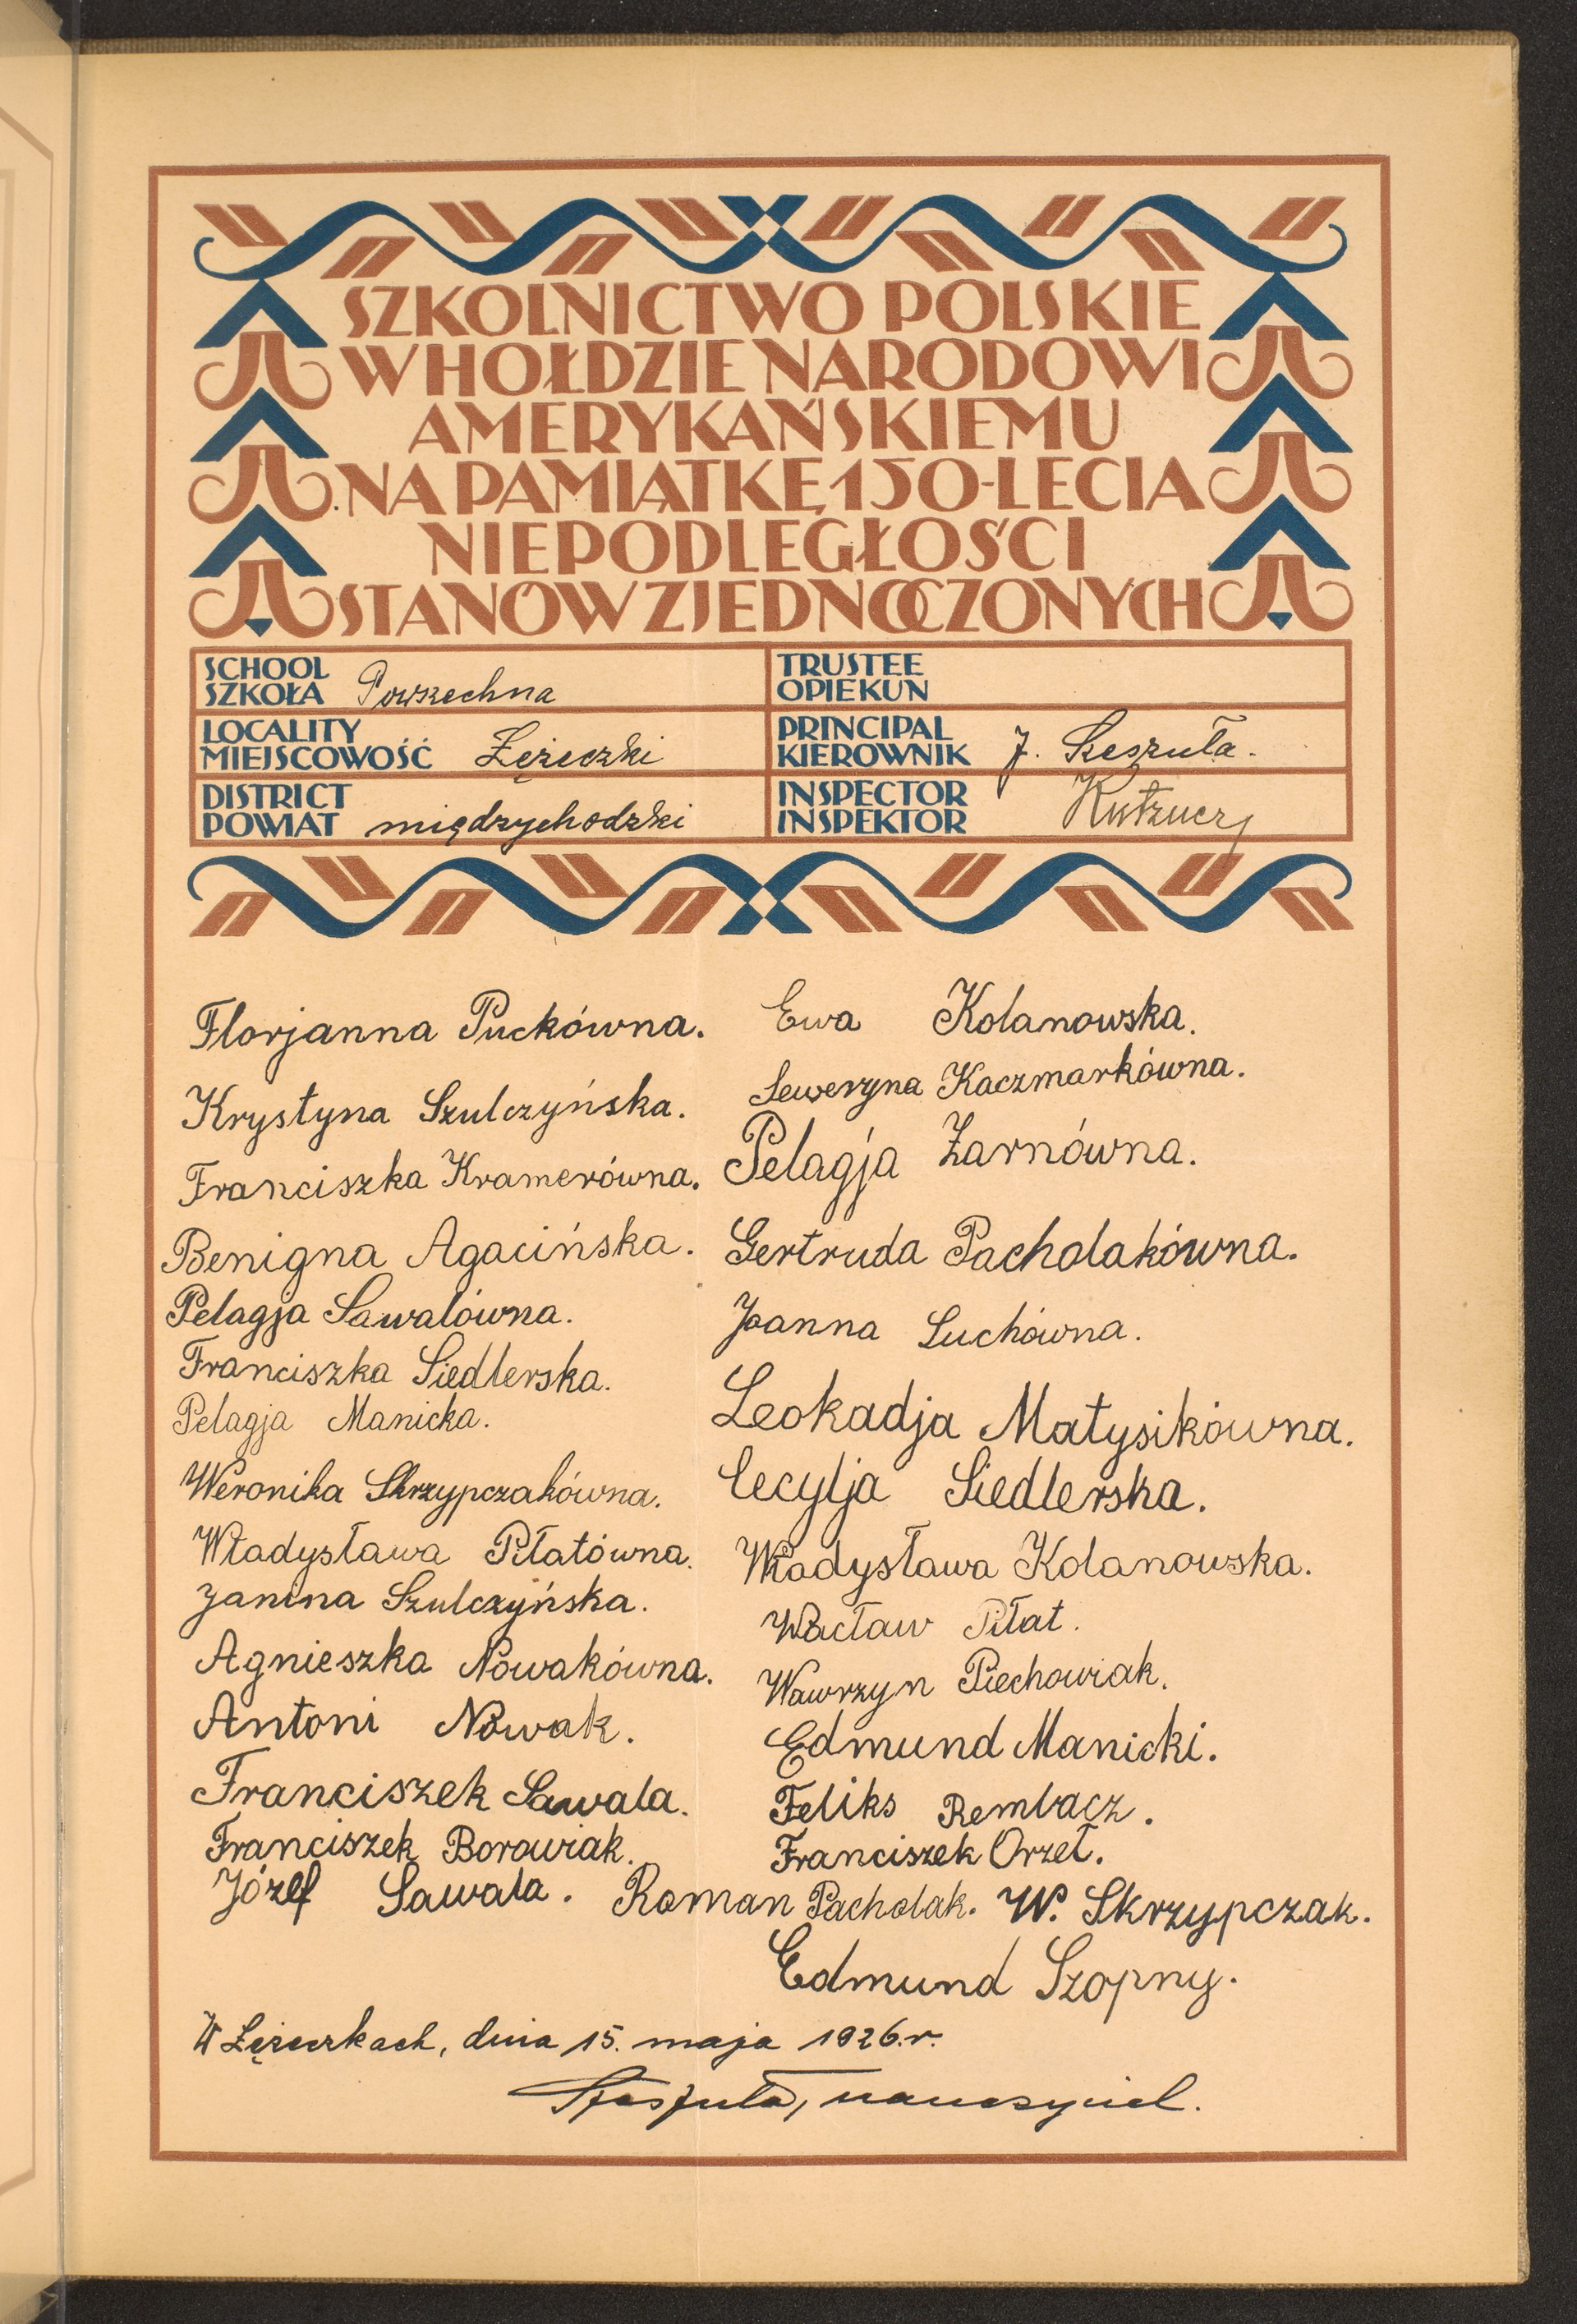 SZKOLNICTWO POLSKIE
W HOŁDZIE NARODOWI
AMERYKAŃSKIEMU
NA PAMIĄTKĘ 150-LECIA
NIEPODLEGŁOŚCI
STANÓW ZJEDNOCZONYCH
SCHOOL
SZKOŁA Powszechna
TRUSTEE
OPIEKUN
LOCALITY
MIEJSCOWOŚĆ Łężeczki
PRINCIPAL
KIEROWNIK J. Szeszuła.
DISTRICT
POWIAT międzychodzki
INSPECTOR
INSPEKTOR
Florjanna Puckówna.
Krystyna Szulczyńska.
Franciszka Kramerówna.
Benigna Agacińska.
Pelagja Sawalówna.
Franciszka Siedlerska.
Pelagja Manicka.
Weronika Skrzypczakówna.
Władysława Piłatówna.
Janina Szulczyńska.
Agnieszka Nowakówna.
Antoni Nowak.
Franciszek Sawala.
Franciszek Borowiak.
Ewa Kolanowska.
Seweryna Kaczmarkówna.
Pelagja Żarnówna.
Gertruda Pacholakówna.
Joanna Suchówna.
Leokadja Matysikówna.
Cecylja Siedlerska.
Władysława Kolanowska.
Wacław Piłat.
Wawrzyn Piechowiak.
Edmund Manicki.
Feliks Rembacz.
Franciszek Orzeł.
Józef Sawala. Roman Pacholak. W. Skrzypczak.
Edmund Szopny.
W Łężeczkach, dnia 15. maja 1926.r.
Szeszuła, nauczyciel.